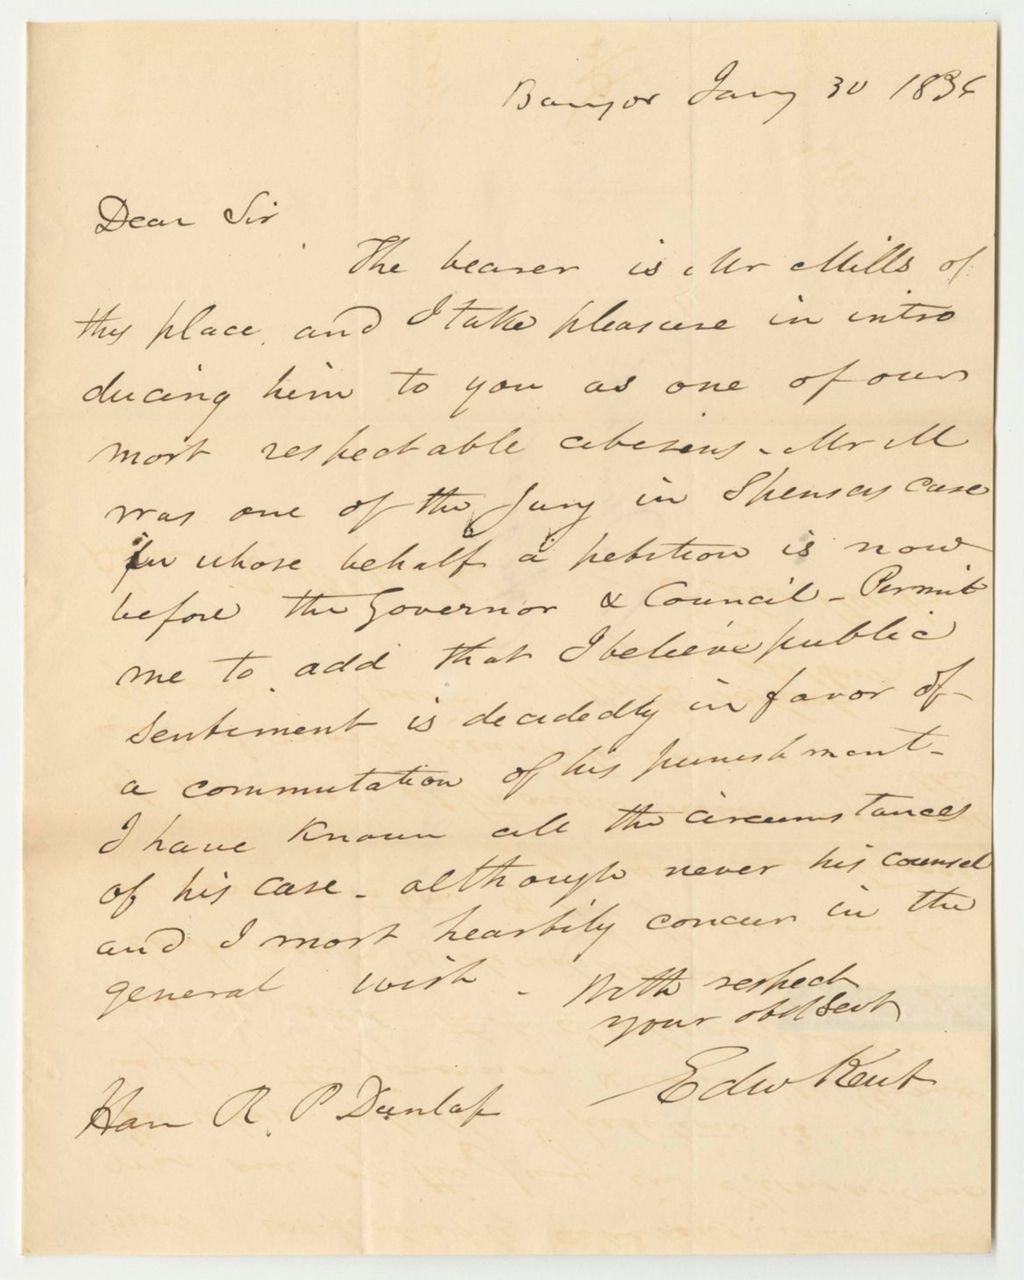 Bangor Jany 30 1836
Dear Sir
The bearer is Mr Mills of
this place, and I take pleasure in intro
ducing him to you as one of our
most respectable citizens - Mr M
was one of the Jury in Spensers case
in whose behalf a petition is now
before the Governor & Council - Permit
me to add that I believe public
sentiment is decidedly in favor of
a commutation of his punishment -
I have known all the circumstances
of his case - although never his counsel
and I most heartily concur in the
general wish - With respect
your obt Sevt
Edw Kent
Hon R. P Dunlap